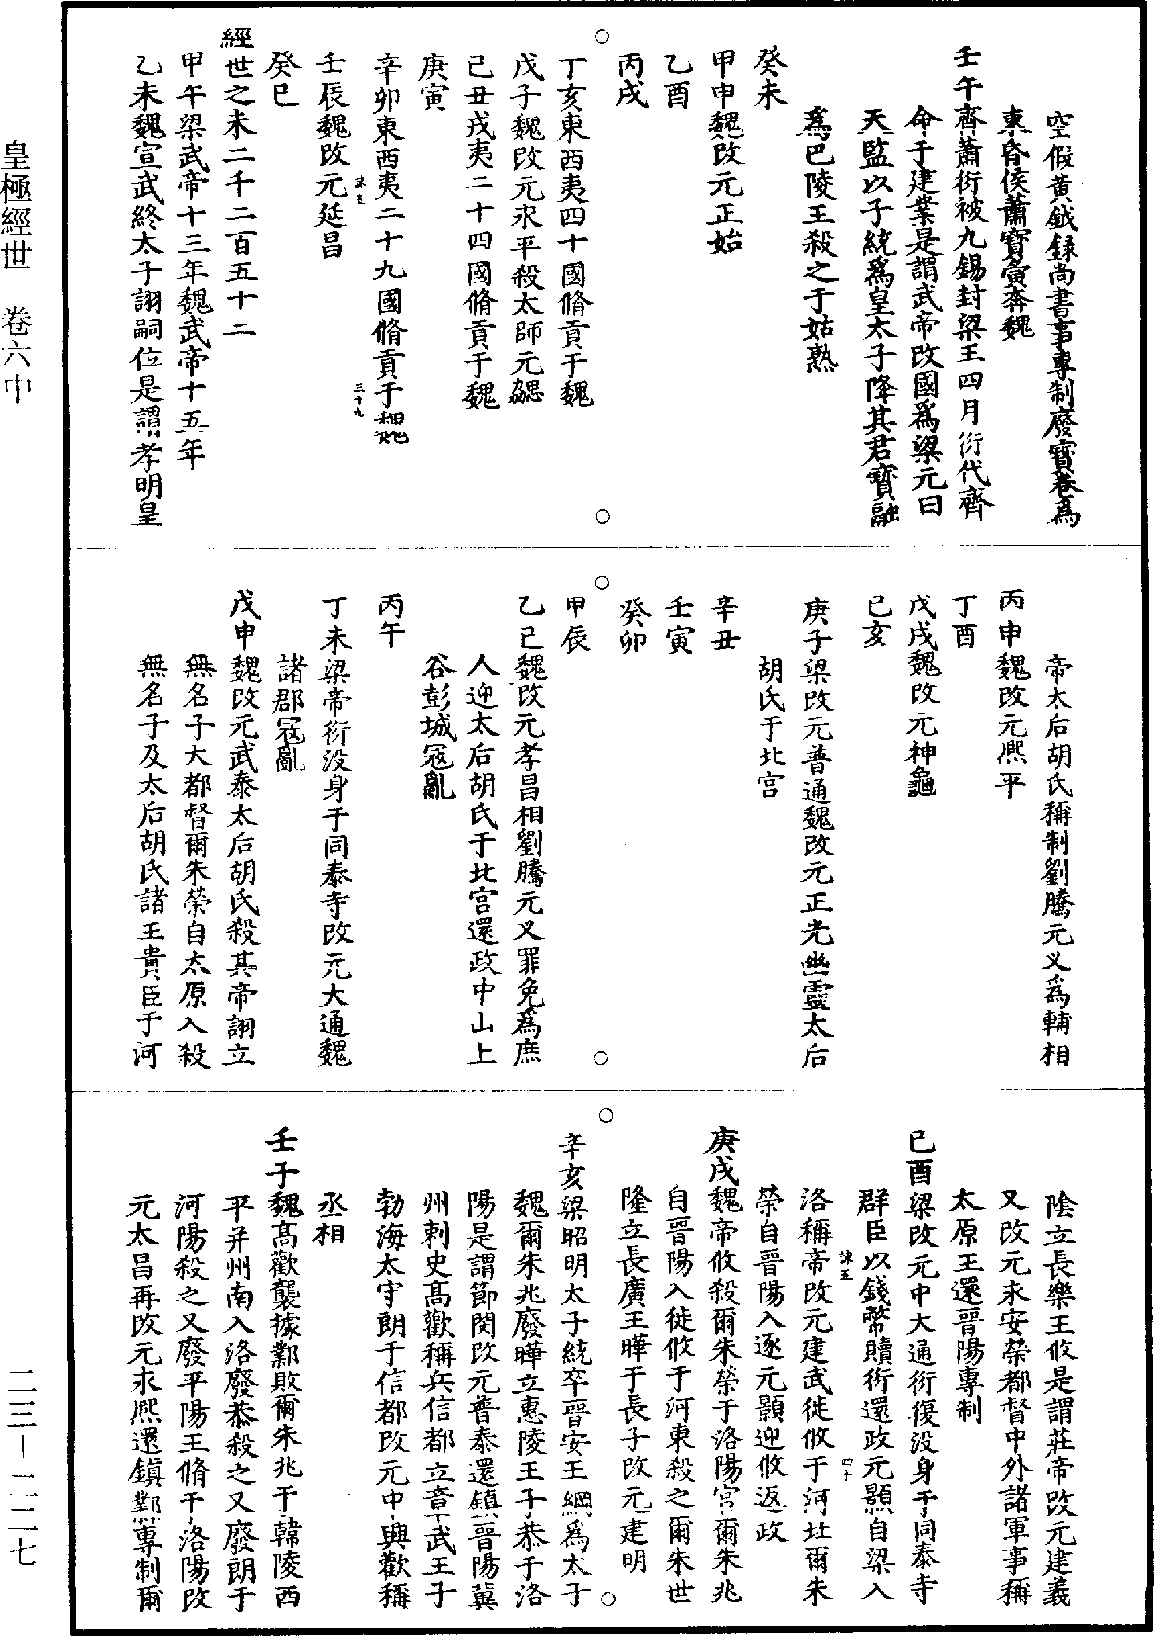 空假黃鉞録尚書事專制廢寶卷爲
東昏侯蕭寶夤奔魏
壬午齊蕭衍被九錫封梁王四月衍代齊
命于建業是謂武帝改國爲梁元曰
天監以子統爲皇太子降其君寶融
爲巴陵王殺之于姑熟
癸未
甲申魏改元正始
乙酉
丙戌
丁亥東西夷四十國脩貢于魏
戊子魏改元永平殺太師元勰
己丑戎夷二十四國脩貢于魏
庚寅
辛卯東西夷二十九國脩貢于魏
壬辰魏改元延昌
癸巳
經世之未二千二百五十二
甲午梁武帝十三年魏武帝十五年
乙未魏宣武終太子詡嗣位是謂孝明皇
帝太后胡氏稱制劉騰元乂爲輔相
丙申魏改元熙平
丁酉
戊戌魏改元神龜
己亥
庚子梁改元普通魏改元正光幽靈太后
胡氏于北宮
辛丑
壬寅
癸卯
甲辰
乙巳魏改元孝昌相劉騰元乂罪免爲庶
人迎太后胡氏于北宮還政中山上
谷彭城寇亂
丙午
丁未梁帝衍没身于同泰寺改元大通魏
諸郡寇亂
戊申魏改元武泰太后胡氏殺其帝詡立
無名子大都督爾朱榮自太原入殺
無名子及太后胡氏諸王貴臣于河
陰立長樂王攸是謂莊帝改元建義
又改元永安榮都督中外諸軍事稱
太原王還晉陽專制
己酉梁改元中大通衍復没身于同泰寺
群臣以錢幣贖衍還政元顥自梁入
洛稱帝改元建武徙攸于河北爾朱
榮自晉陽入逐元顥迎攸返政
庚戌魏帝攸殺爾朱榮于洛陽宮爾朱兆
自晉陽入徙攸于河東殺之爾朱世
隆立長廣王曄于長子改元建明
辛亥梁昭明太子統卒晉安王綱爲太子
魏爾朱兆廢曄立惠陵王子恭于洛
陽是謂節閔改元普泰還鎮晉陽冀
州刺史高歡稱兵信都立章武王子
勃海太守朗于信都改元中興歡稱
丞相
壬子魏高歡襲據鄴敗爾朱兆于韓陵西
平并州南入洛廢恭殺之又廢朗于
河陽殺之又廢平陽王脩于洛陽改
元太昌再改元永熙還鎮鄴專制爾
皇極經世 卷六中
二三—二二七